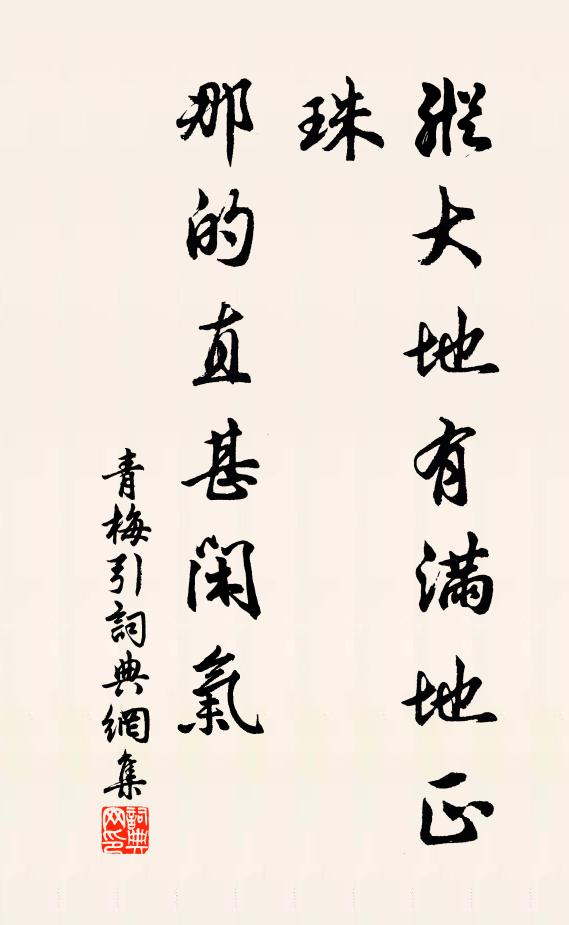 縱大地有滿地正
珠
那的直甚閑氣
青梅引詞典網集
詞典
网印